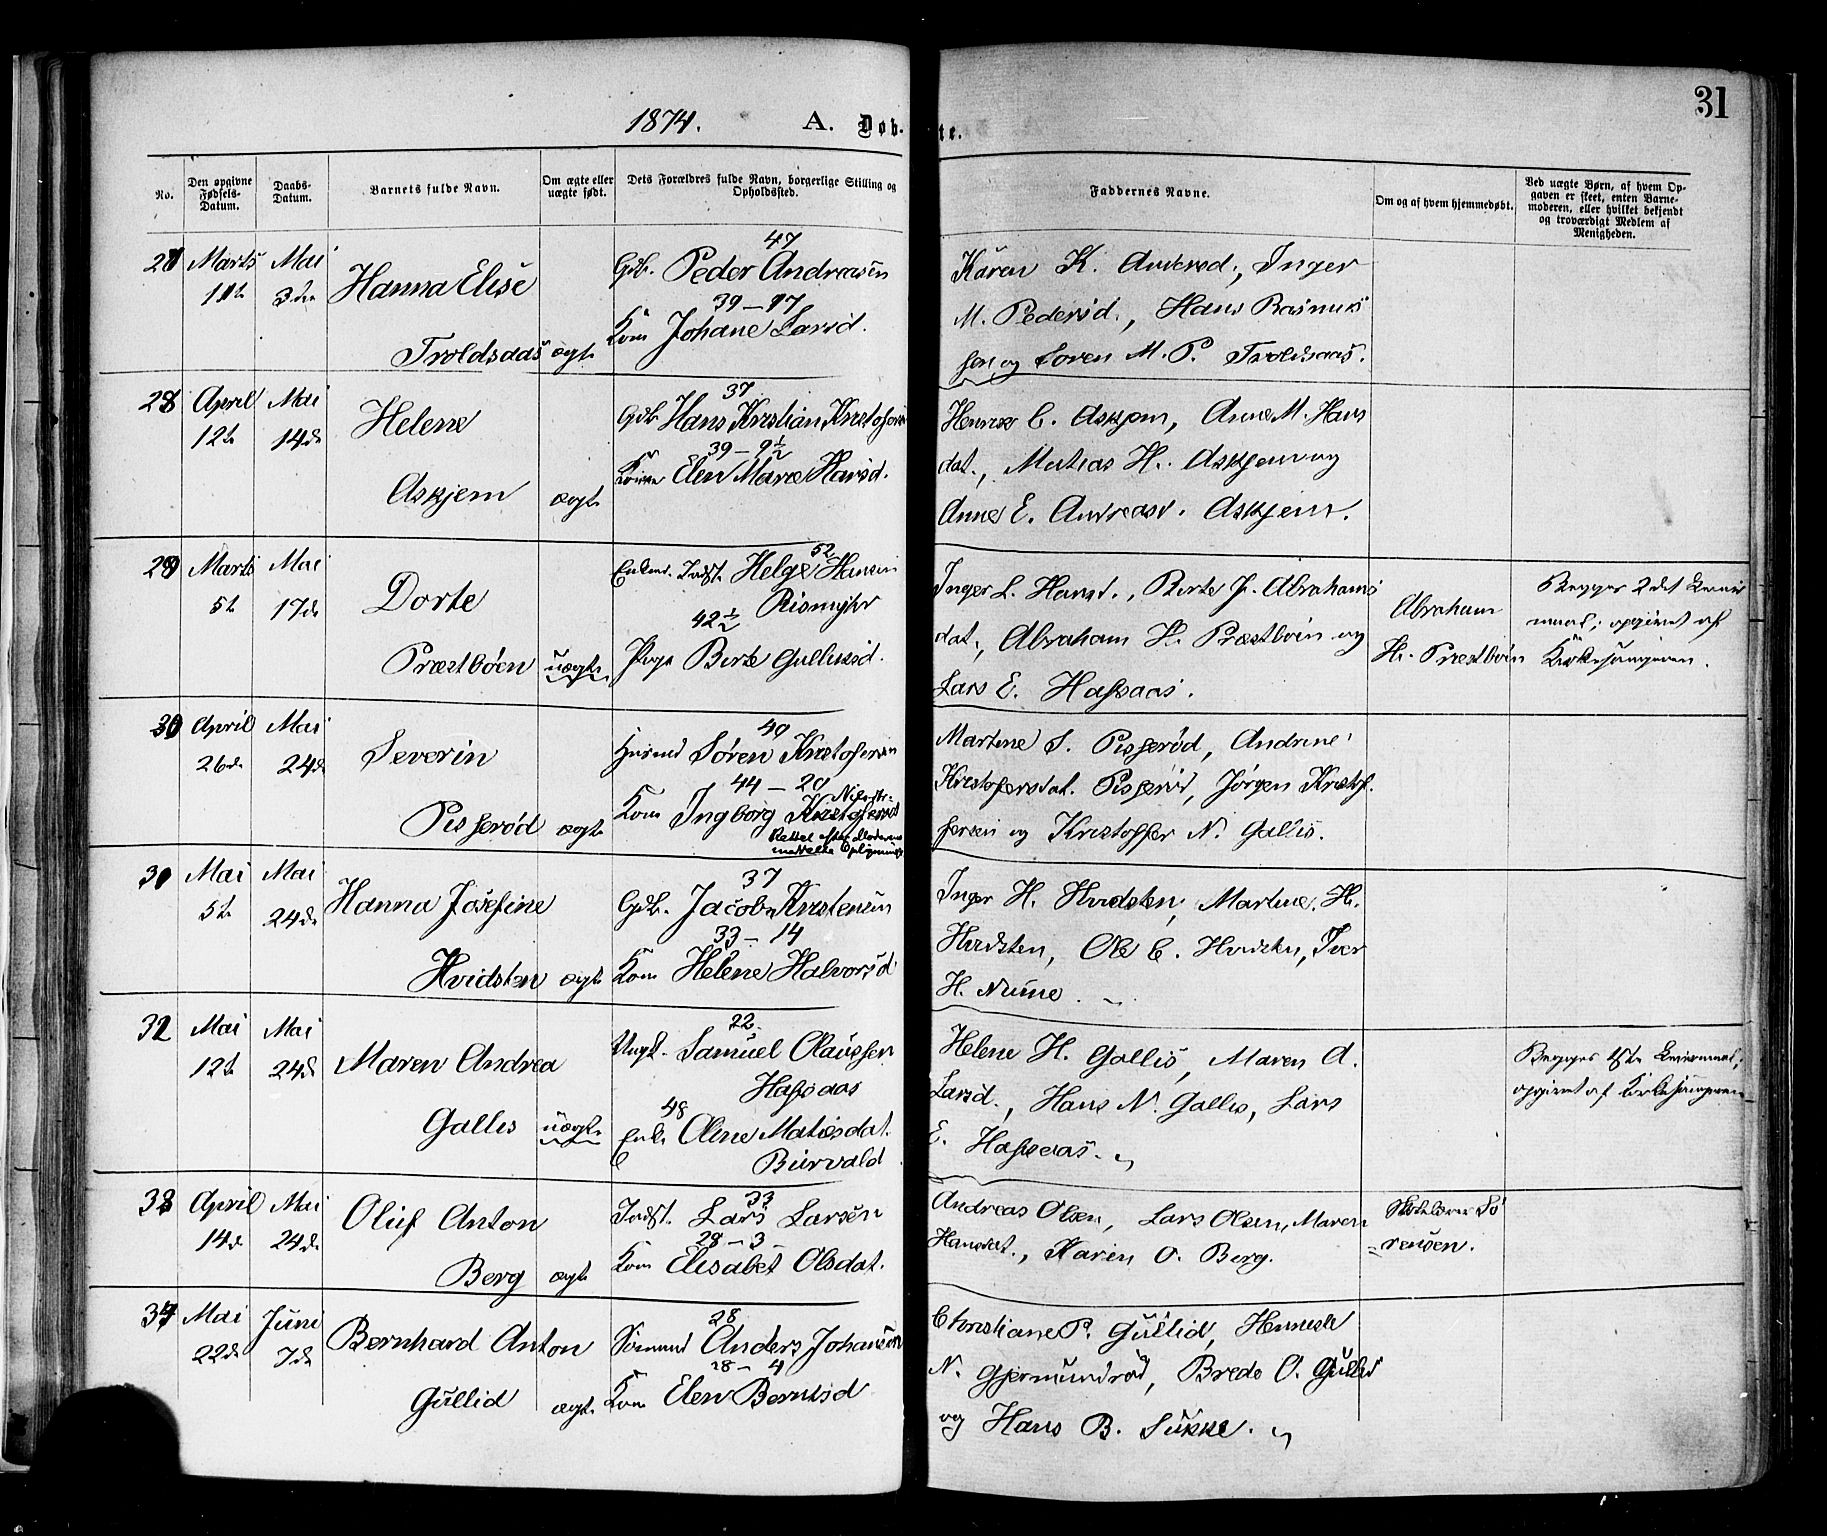 31
1874. A. Døb- te.
No. Den opgivne Fødsels-Datum. Daabs-Datum. Barnets fulde Navn. Om ægte eller uægte født. Dets Forældres fulde Navn, borgerlige Stilling og Opholdssted. Faddernes Navne. Om og af hvem hjemmedøbt. Ved uægte Børn, af hvem Opgaven er skeet, enten Barnemoderen, eller hvilket bekjendt og troværdigt Medlem af Menigheden.
47
27 Marts Mai Gdb. Peder Andreasen Karen K. Andersd., Inger
11te 3die Hanna Elise 39 – 17 M. Pedersd., Hans Rasmus
Kone Johane Larsd.
Troldsaas ægte sen og Soren M. P. Troldsaas.
37
28 April Mai Helene Gdb Hans Kristian Kristofersen C. Askjem, Anne M. Hans
12te 14de 39 – 9½ dat., Matias H. Askjem og
Kone Elen Marie Hansd.
Askjem ægte Anne E. Andreasd. Askjem.
52
29 Marts Mai Helge Hansen Inger L. Hansd., Berte J. Abrahams Begges 2det Leier
5te 17de Dorte Rismyhr Abraham maal; opgivet af
42½ dat., Abraham H. Præstbøen og H. Præstbøen Kirkesangeren.
Præstbøen uægte Pige Berte Gulliksd. Lars E. Hafsaas.
49
30 April Mai Severin Søren Kristofersen Martine S. Pisserød, Andrine
26de 24de 44 – 20 Kristofersdat. Pisserød, Jørgen Kristof-
Nilsdtr.
Kone Ingborg Kristofersd
Pisserød ægte Rettet efter Moderens fersen og Kristoffer N. Gallis.
37
31 Mai Mai Hanna Josefine Gdb. Jacob Kristensen Inger H. Hvidsten, Martine H.
5te 24de 33 – 14 Hvidsten, Ole C. Hvidsten, Iver
Hvidsten ægte Kone Helene Halvorsd H. Numme.
22
32 Mai Mai Ungk. Samuel Olaussen Helene H. Gallis, Maren A. Begges 1ste Leiermaal;
12te 24de Maren Andrea Hafsaas Larsd., Hans N. Gallis, Lars opgivet af Kirkesangeren
48
Gallis uægte Enke Oline Matisdat. E. Hafsaas.
Burvald
33
33 April Mai Oluf Anton Indst. Lars Larsen Andreas Olsen, Lars Olsen, Maren Skolelærer Sö
14de 24de 28 – 3 Hansdat., Karen O. Berg. rensen.
Berg ægte Kone Elisabet Olsdat.
28
34 Mai Juni Bernhard Anton Sömand Anders Johansen Christiane P. Gullid,
22de 7de 28 – 4 N. Gjermundröd, Brede O. Gullid
Gullid ægte Kone Elen Berntsd og Hans B. Sukke.